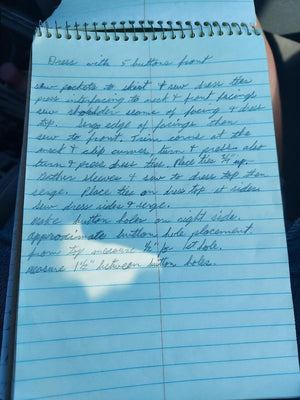 Dress with 5 buttons front
sew pockets to skirt & sew dress ties
press interfacing to neck & front facings
sew shoulder seams of facing & dress
top serg edge of facings. Then
sew to front. Trim corners at the
neck & clip curves, turn & press. also
turn & press dress ties. Place ties 3/4" up.
Gather sleeves & sew to dress top then
serge. Place ties on dress top at sides
Sew dress sides & serge.
Make button holes on right side.
approximate button hole placement
from top measure 1/2" for 1st hole.
measure 1 1/2" between button holes.